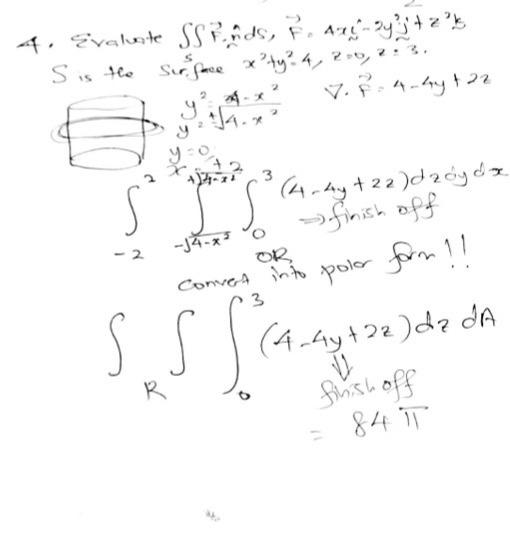 4. Evaluate ∫∫ₛ F⃗.n̂ ds, F⃗ = 4xi - 2y²j + z²k
S is the surface x²+y²=4, z=0, z=3.
y² = 4-x²
y = ±√4-x²
∇.F⃗ = 4-4y+2z
y=0
x = ±2
∫₋₂² ∫₋√4-x²^+√4-x² ∫₀³ (4-4y+2z)dzdydx
⇒ finish off
OR
Convert into polar form!!
∫∫_R ∫₀³ (4-4y+2z)dz dA
⇓
finish off
= 84π